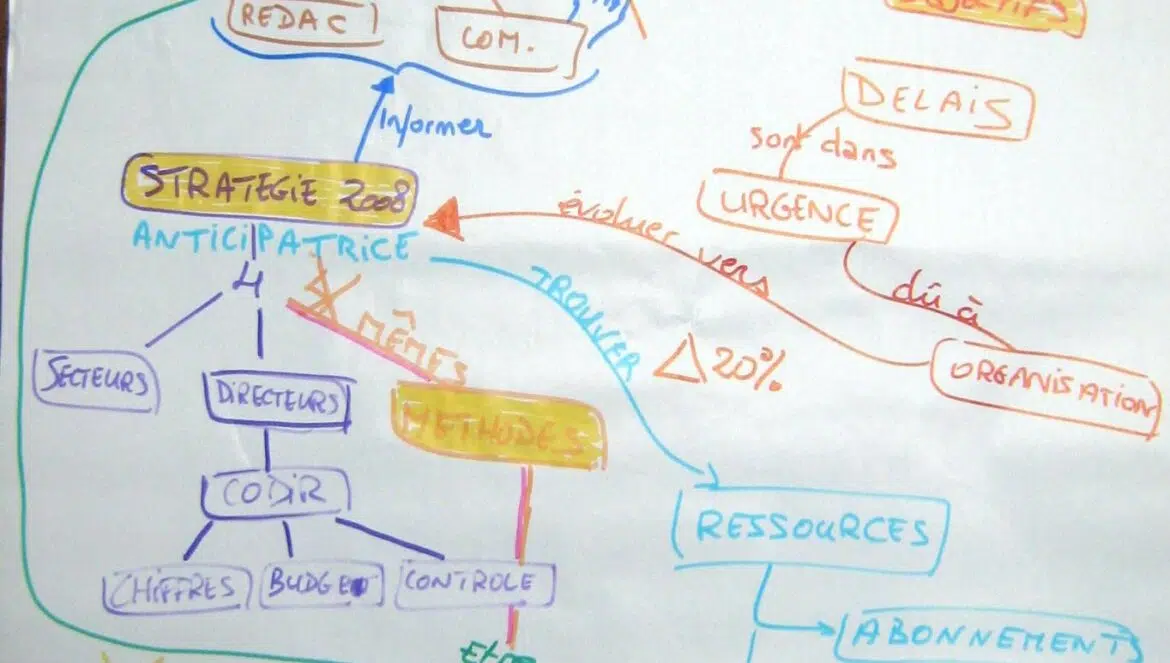 REDAC
COM.
OBJECTIFS
DELAIS
Informer
sont dans
STRATEGIE 2008
URGENCE
évoluer vers
ANTICIPATRICE
dû à
4
TROUVER
MÊMES
Δ 20%
ORGANISATION
SECTEURS
DIRECTEURS
METHODES
CODIR
RESSOURCES
CHIFFRES
BUDGET
CONTROLE
ABONNEMENTS